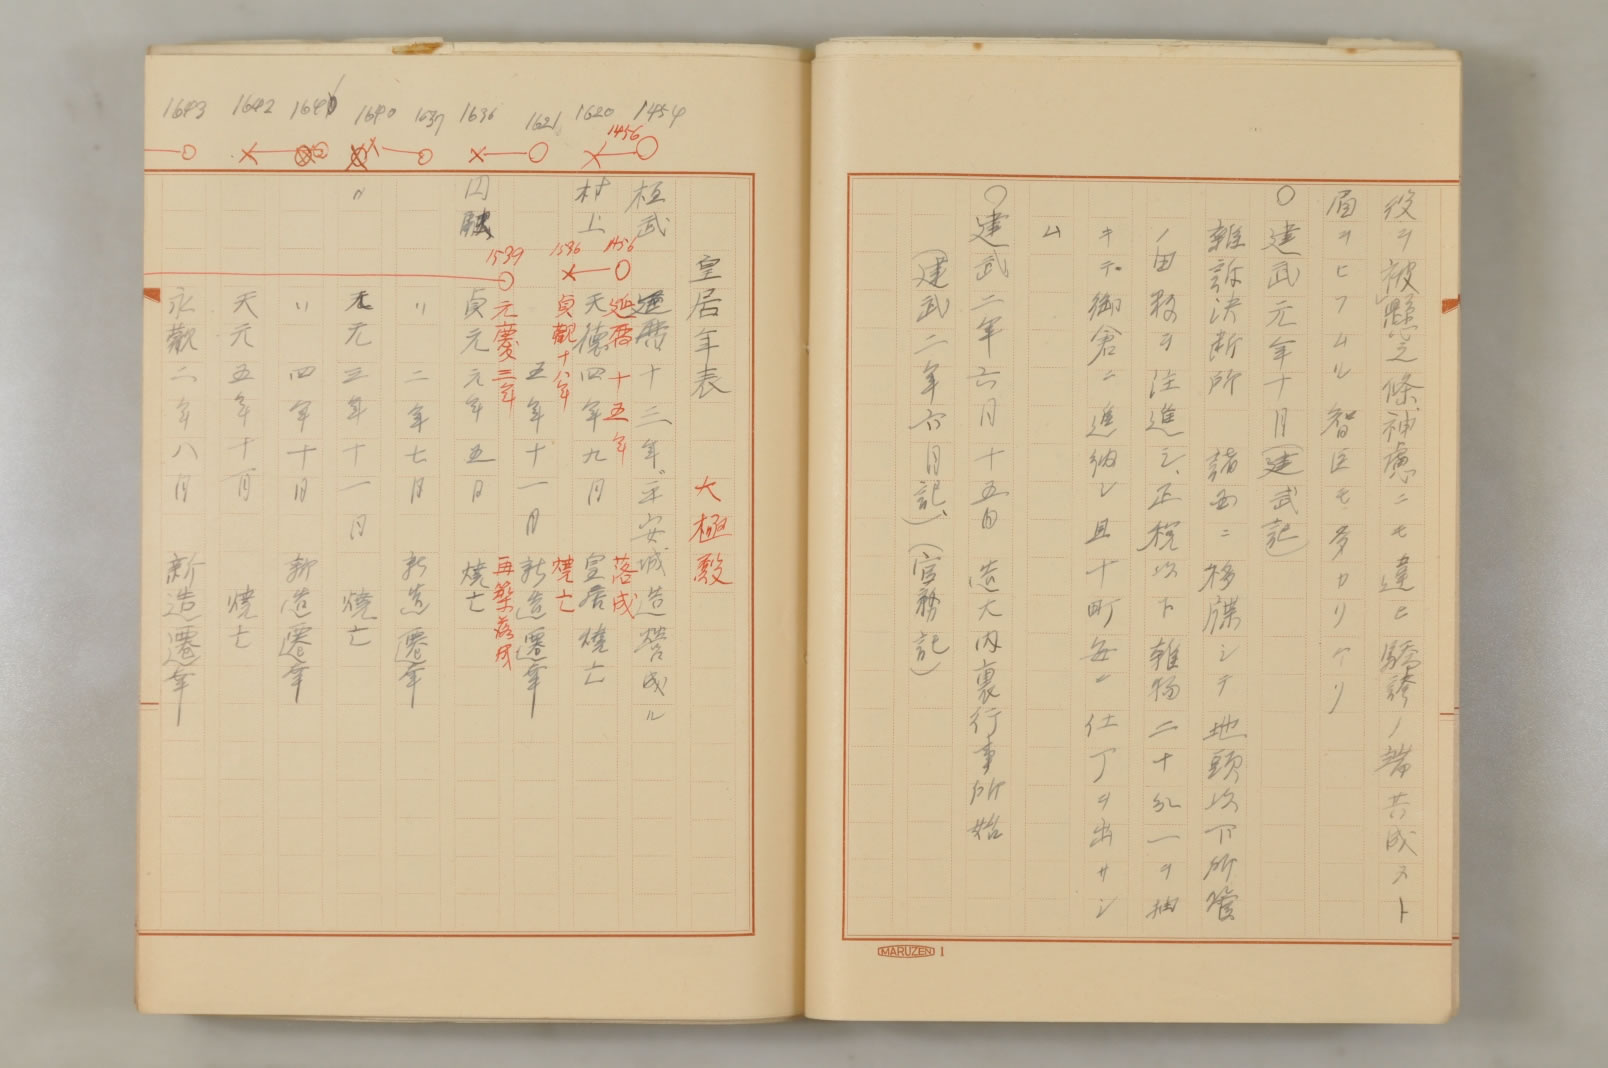 役ヲ被懸之條神慮ニモ違ヒ驕誇ノ端共成スト
眉ヲヒフムル智臣モ多カリケリ
○建武元年十月(建武記)
雑訴決断所 諸国ニ移牒シテ地頭以下所管
ノ田数ヲ注進シ、正税以下雑物二十分一ヲ抽
キテ御倉ニ進納シ且十町毎ニ仕丁ヲ出サシ
ム
○建武二年六月十五日 造大内裏行事所始
(建武二年六月記、)(官務記)
MARUZEN 1
1454
1456
1620
1621
1636
1637
1640
1641
1642
1643
皇居年表 大極殿
桓武 延暦十三年 平安城造営成ル
1456 延暦十五年 落成
村上 天徳四年九月 皇居焼亡
1536 貞観十八年 焼亡
五年十一月 新造遷幸
1539 元慶三年 再築落成
円融 貞元元年五月 焼亡
〃 二年七月 新造遷幸
〃 天元三年十一月 焼亡
〃 四年十月 新造遷幸
天元五年十一月 焼亡
永観二年八月 新造遷幸